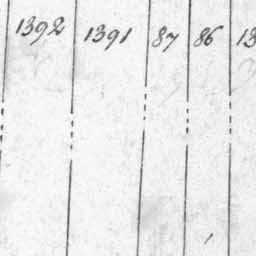 1392 1391 87 86 13